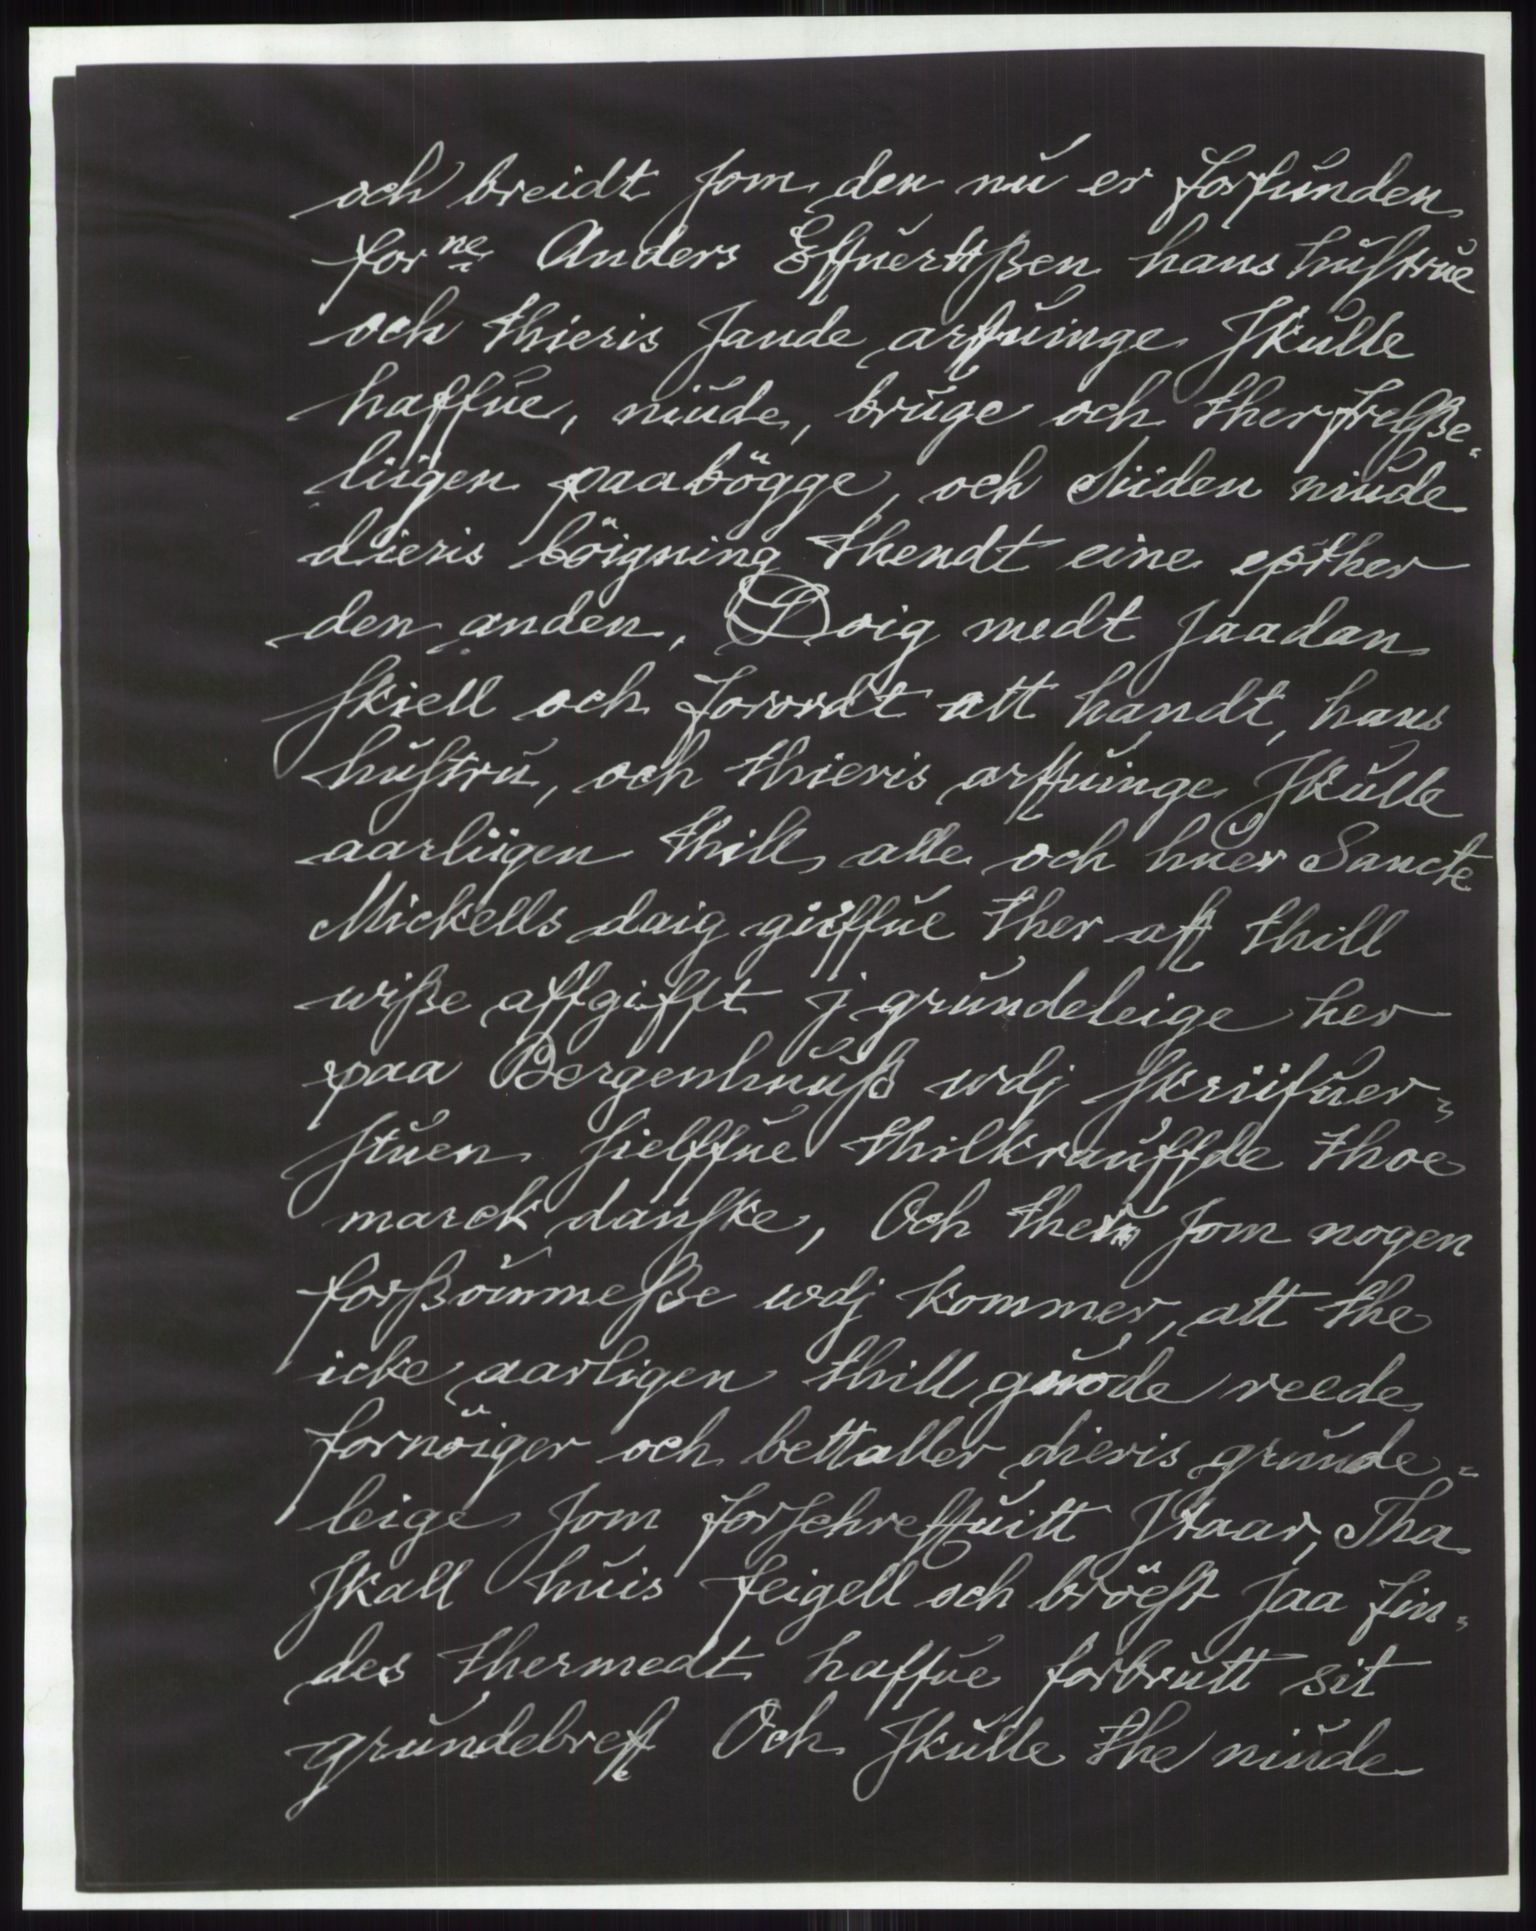 och breidt som den nu er forfunden
forne Anders Effuerttßen hans hustrue
och thieris sande arffuinge skulle
haffue, niude, bruge och ther frelße-
liigen paabögge, och siiden niude
dieris böigning thendt eine epther
den anden, Doig medt saadan
skiell och forordt att handt, hans
hustru, och thieris arffuinge skulle
aarliigen thill alle och huer Sancte
Mickells daig giffue ther aff thill
wiße affgifft j grundeleige her
paa Bergenhuuß wdj skriifuer-
stuen sielffue thilkrauffde thoe
marck danske, Och ther som nogen
forßöümmeße wdj kommer, att the
icke aarligen thill guode reede
fornöiger och bettaller dieris grunde-
leige som forschreffuitt staar, Tha
skall huis feigell och bröest saa fin-
des thermedt haffue forbrutt sit
grundebreff Och skulle the niude